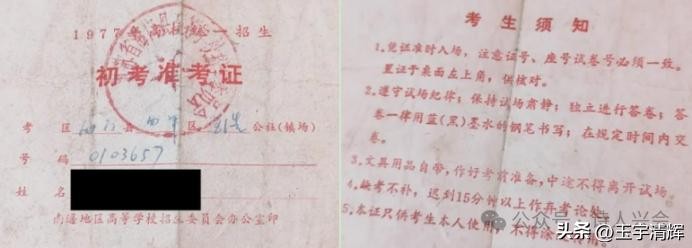 1977
校统一招生
初考准考证
考 区 县 区 公社(镇场)
号 码 0103657
姓 名
南通地区高等学校招生委员会办公室印
考生须知
1.凭证准时入场,注意证号、座号试卷号必须一致。
置证于桌面左上角,供核对。
2.遵守试场纪律;保持试场肃静;独立进行答卷;答
卷一律用蓝(黑)墨水的钢笔书写;在规定时间内交
卷。
3.文具用品自带,作好考前准备,中途不得离开试场。
4.缺考不补,迟到15分钟以上作弃考论处。
5.本证只供考生本人使用,不得涂
公众号·诗人兴会
头条@王宇清辉